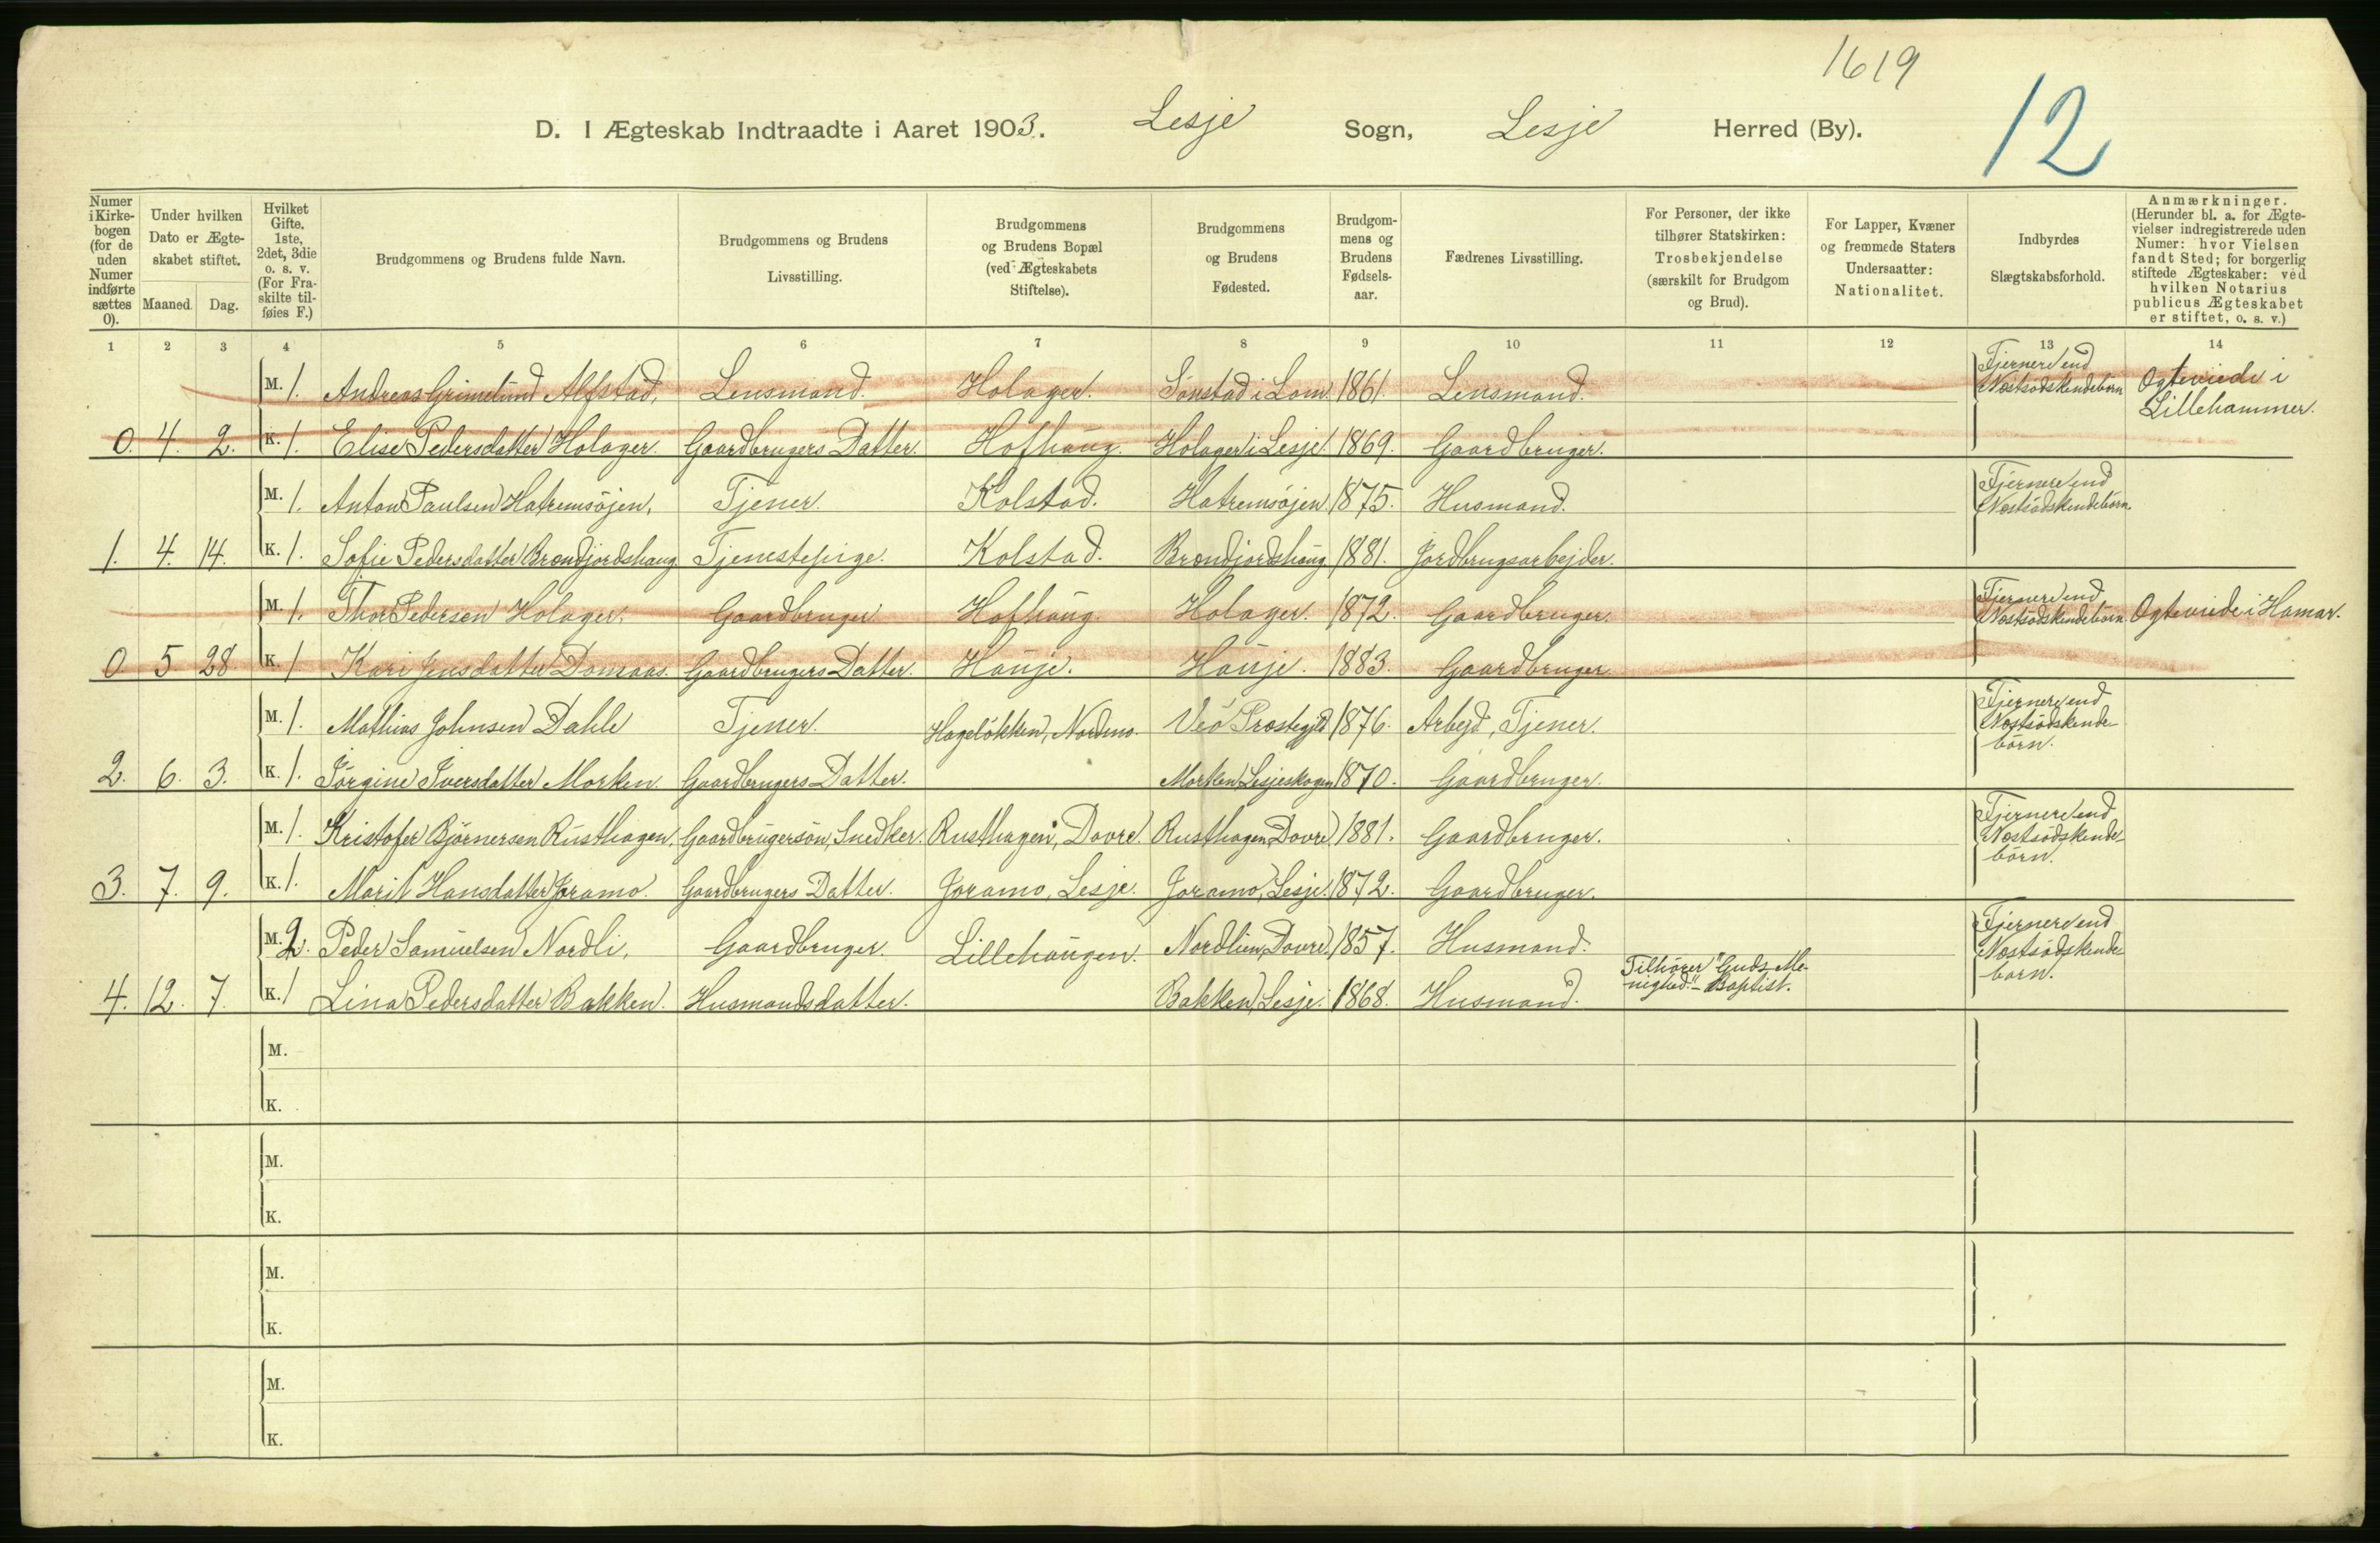 1619
12
D. I Ægteskab Indtraadte i Aaret 1903. Lesje Sogn, Lesje Herred (By).
Numer i Kirkebogen (for de uden Numer indførte sættes 0).
Under hvilken Dato er Ægteskabet stiftet.
Maaned. Dag.
Hvilket Gifte. 1ste, 2det, 3die o. s. v. (For Fraskilte tilføies F.)
Brudgommens og Brudens fulde Navn.
Brudgommens og Brudens Livsstilling.
Brudgommens og Brudens Bopæl (ved Ægteskabets Stiftelse).
Brudgommens og Brudens Fødested.
Brudgommens og Brudens Fødselsaar.
Fædrenes Livsstilling.
For Personer, der ikke tilhører Statskirken: Trosbekjendelse (særskilt for Brudgom og Brud).
For Lapper, Kvæner og fremmede Staters Undersaatter: Nationalitet.
Indbyrdes Slægtskabsforhold.
Anmærkninger. (Herunder bl. a. for Ægtevielser indregistrerede uden Numer: hvor Vielsen fandt Sted; for borgerlig stiftede Ægteskaber: ved hvilken Notarius publicus Ægteskabet er stiftet, o. s. v.)
1 2 3 4 5 6 7 8 9 10 11 12 13 14
M. 1. Andreas Grimelund Alfstad, Lensmand. Holager. Sönstad i Lom. 1861. Lensmand. Fjernere end Næstsödskendebörn Ogteviede i Lillehammer.
0. 4. 2. K. 1. Elise Pedersdatter Holager. Gaardbrugers Datter. Hofhaug. Holager i Lesje. 1869. Gaardbruger.
M. 1. Anton Paulsen Hatremsöjen, Tjener. Kolstad. Hatremsöjen. 1875. Husmand. Fjernere end Næstsödskendebörn.
1. 4. 14. K. 1. Sofie Pedersdatter Brændjordshaug Tjenestepige. Kolstad. Brændjordshaug 1881. Jordbrugsarbejder.
M. 1. Thor Pedersen Holager. Gaardbruger Hofhaug. Holager. 1872. Gaardbruger. Fjernere end Næstsödskendebörn. Ogteviede i Hamar.
0 5 28 K. 1 Kari Jensdatter Domaas. Gaardbrugers Datter. Hauje. Hauje. 1883. Gaardbruger
M. 1. Mathias Johnsen Dahle Tjener. Hagelökken, Nordmo. Veö Præstegjld 1876. Arbejd, Tjener. Fjernere end Næstsödskendebörn.
2. 6. 3. K. 1. Jörgine Iversdatter Morken. Gaardbrugers Datter. Morken, Lesjeskogen 1870. Gaardbruger.
M. 1. Kristofer Björnersen Rusthagen, Gaardbrugersön, Snedker. Rusthagen, Dovre. Rusthagen Dovre 1881. Gaardbruger. Fjernere end Næstsödskendebörn.
3. 7. 9. K. 1. Marit Hansdatter Joramo. Gaardbrugers Datter. Joramo, Lesje. Joramo, Lesje. 1872. Gaardbruger.
M. 2. Peder Samuelsen Nordli, Gaardbruger. Lillehaugen. Nordlien, Dovre. 1857. Husmand. Fjernere end Næstsödskendebörn.
4. 12. 7. K. 1 Lina Pedersdatter Bakken. Husmandsdatter. Bakken, Lesje. 1868. Husmand. Tilhörer "Guds Menighed" - Baptist.
M.
K.
M.
K.
M.
K.
M.
K.